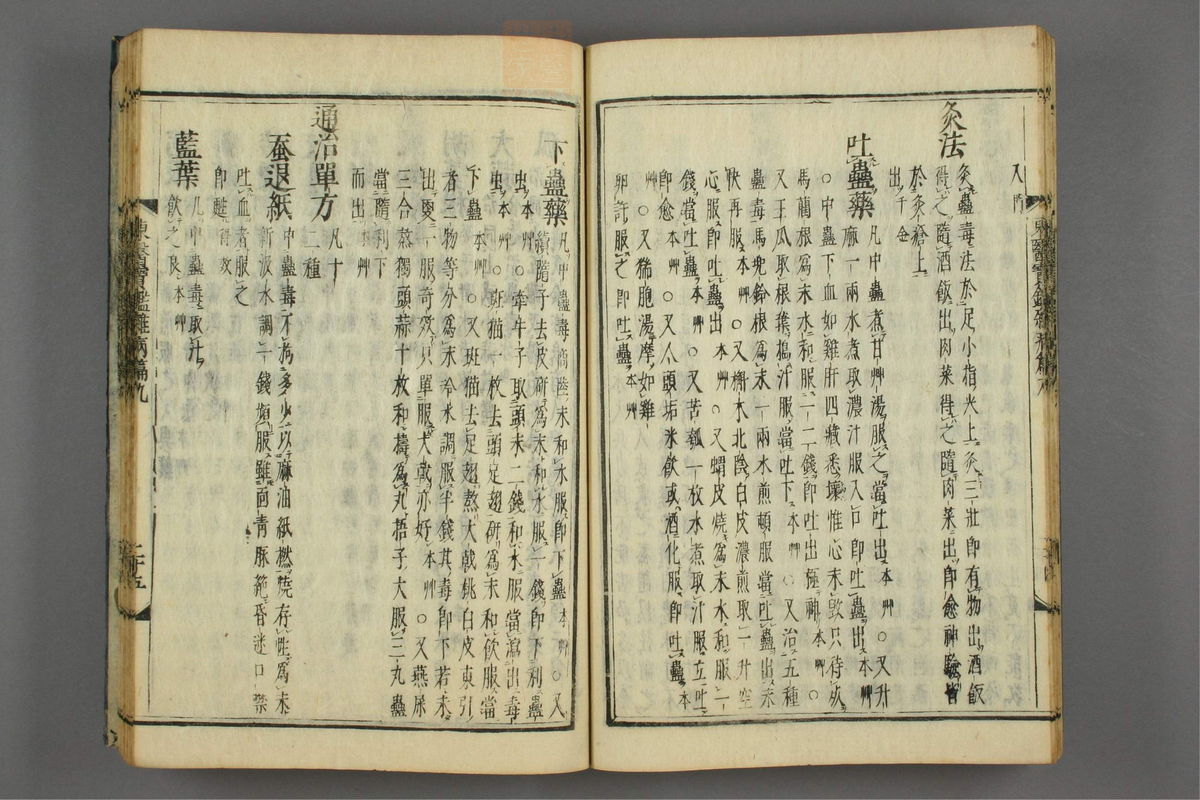 又門
灸法
灸蠱毒法於足小指尖上灸三壯卽有物出酒飯
得之隨酒飯出肉菜得之隨肉菜出卽愈神驗皆
於灸瘡上
出千金
吐蠱藥
凡中蠱煮甘艸湯服之當吐出本艸○又升
麻一兩水煮取濃汁服入口卽吐蠱出本艸
○中蠱下血如雞肝四藏悉壞惟心未毀只待死
馬藺根爲末水和服一二錢卽吐出極神本艸○
又王瓜取根葉搗汁服當吐下本艸○又治五種
蠱毒馬兜鈴根爲末一兩水煎頓服當吐蠱出未
快再服本艸○又槲木北陰白皮濃煎取一升空
心服卽吐蠱出本艸○又蝟皮燒爲末水和服一
錢當吐蠱本艸○又苦瓠一枚水煮取汁服立吐
卽愈本艸○又人頭垢米飮或酒化服卽吐蠱本
艸○又猪胞湯摩如雞
卵許服之卽吐蠱本艸
下蠱藥
凡中蠱毒商陸末和水服卽下蠱本艸○又
續隨子去皮硏爲末和水服一錢卽下利蠱
虫本艸○牽牛子取頭末二錢和水服當瀉出毒
虫本艸○斑猫一枚去頭足翅硏爲末和飮服當
下蠱本艸○又斑猫去足翅熬大戟桃白皮東引
者三物等分爲末冷水調服半錢其毒卽下若未
出更一服奇效只單服大戟亦好本艸○又燕屎
三合熬獨頭蒜十枚和擣爲丸梧子大服三丸蠱
當隨利下
而出本艸
通治單方
凡十
二種
蚕退紙
中蠱毒不病多少以麻油紙撚燒存性爲末
新汲水調二錢頻服雖面靑脈絶昏迷口禁
吐血者服之
卽甦
藍葉
凡中蠱毒取汁
飮之良本艸
東醫寶鑑雜病篇九
二十五
東醫寶鑑雜病篇九